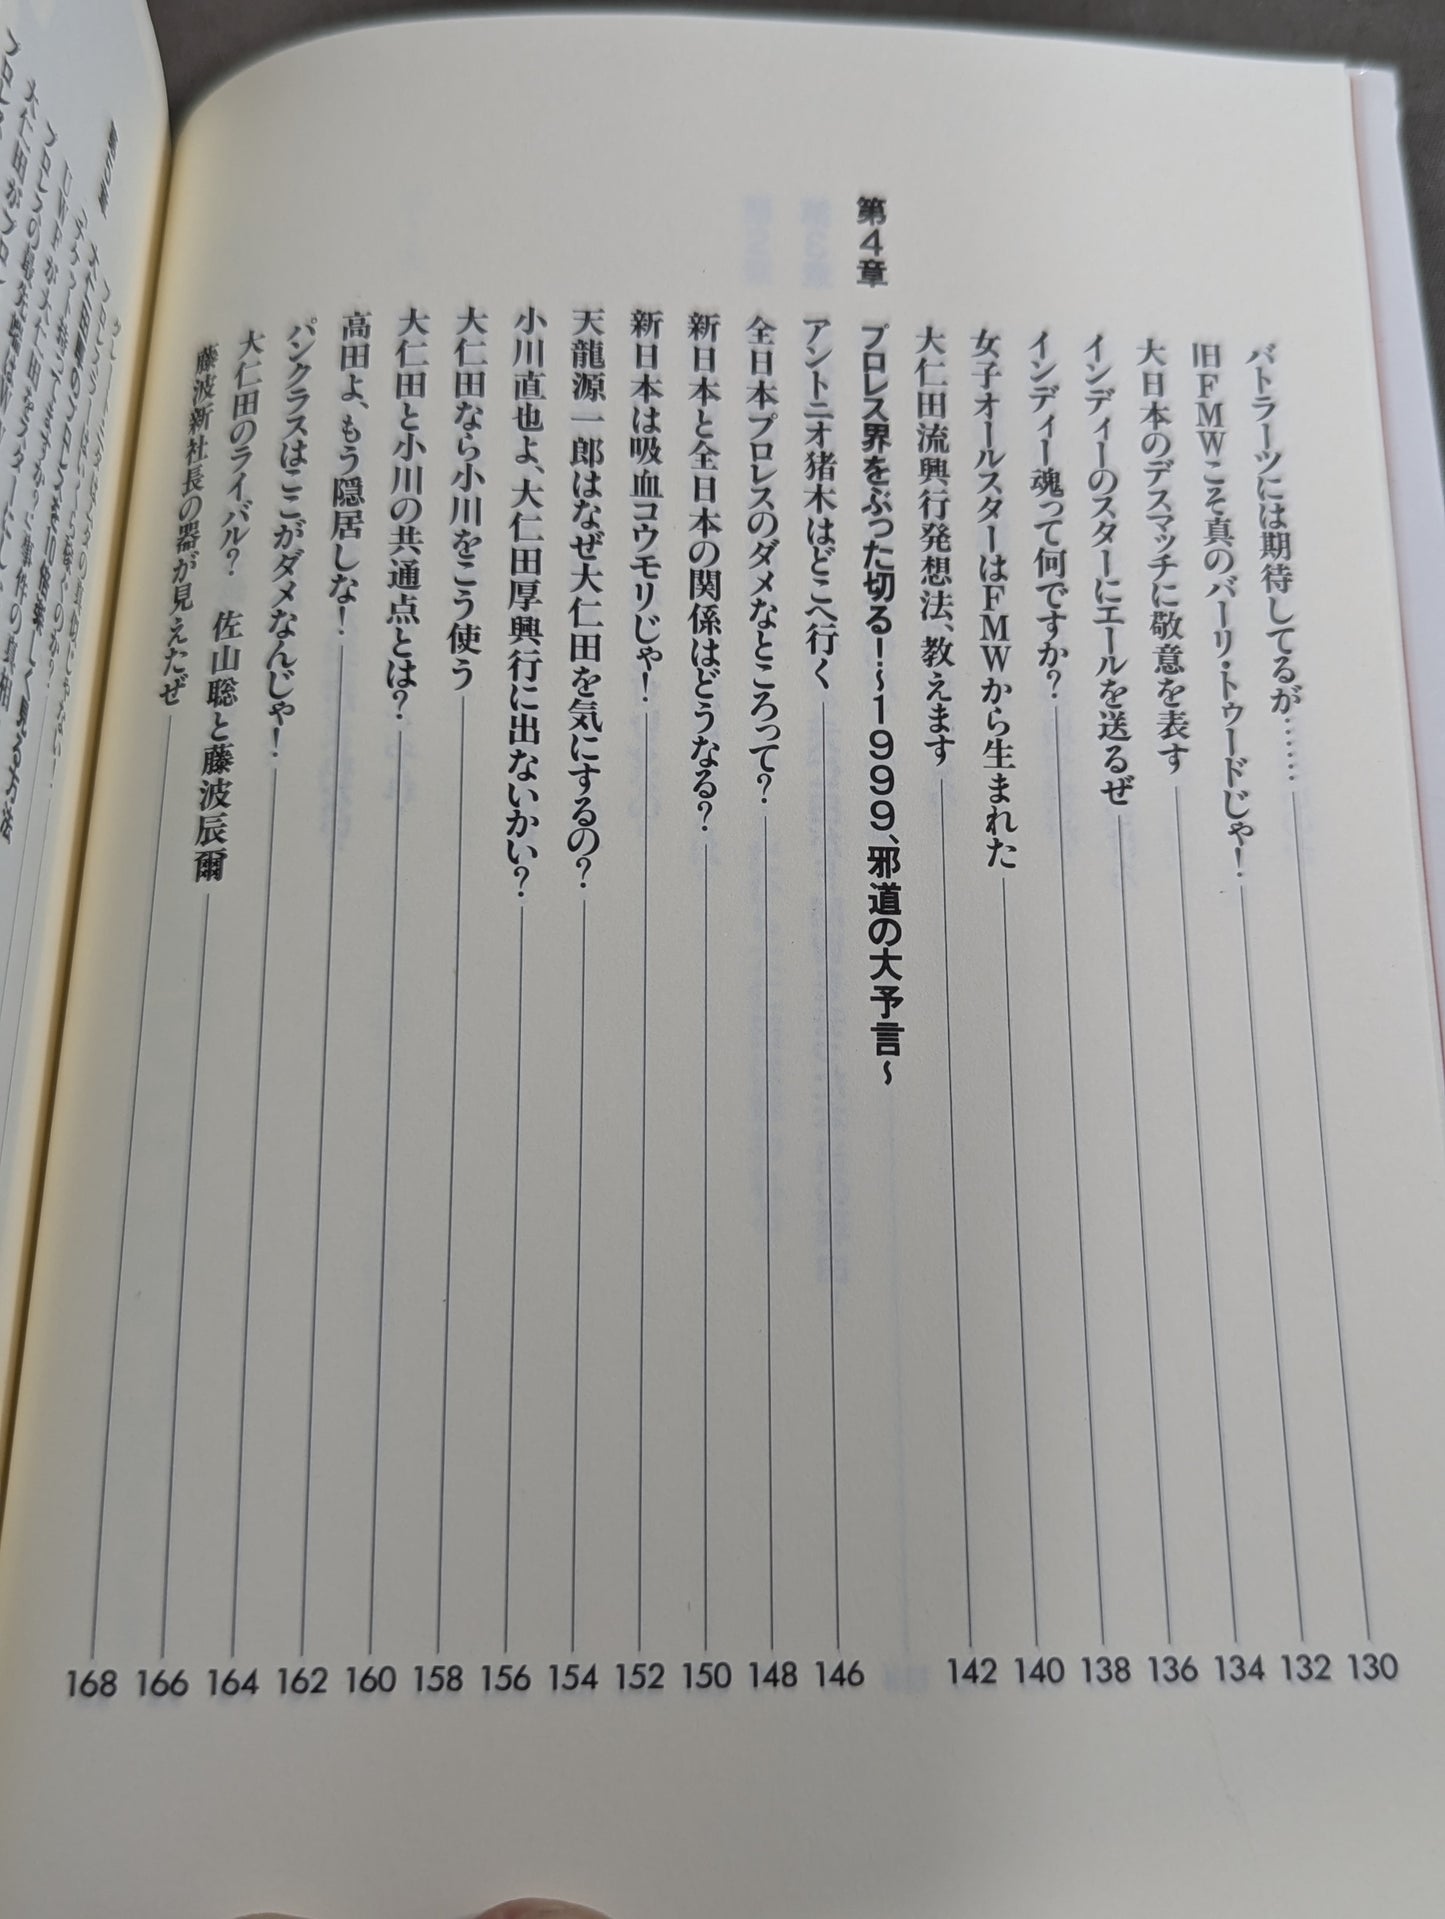 バトラーツには期待してるが……130
旧FMWこそ真のバーリ・トゥードじゃ!132
大日本のデスマッチに敬意を表す134
インディーのスターにエールを送るぜ136
インディー魂って何ですか?138
女子オールスターはFMWから生まれた140
大仁田流興行発想法、教えます142
第4章 プロレス界をぶった切る!〜1999、邪道の大予言〜
アントニオ猪木はどこへ行く146
全日本プロレスのダメなところって?148
新日本と全日本の関係はどうなる?150
新日本は吸血コウモリじゃ!152
天龍源一郎はなぜ大仁田を気にするの?154
小川直也よ、大仁田厚興行に出ないかい?156
大仁田なら小川をこう使う158
大仁田と小川の共通点とは?160
高田よ、もう隠居しな!162
パンクラスはここがダメなんじゃ!164
大仁田のライバル? 佐山聡と藤波辰爾166
藤波新社長の器が見えたぜ168